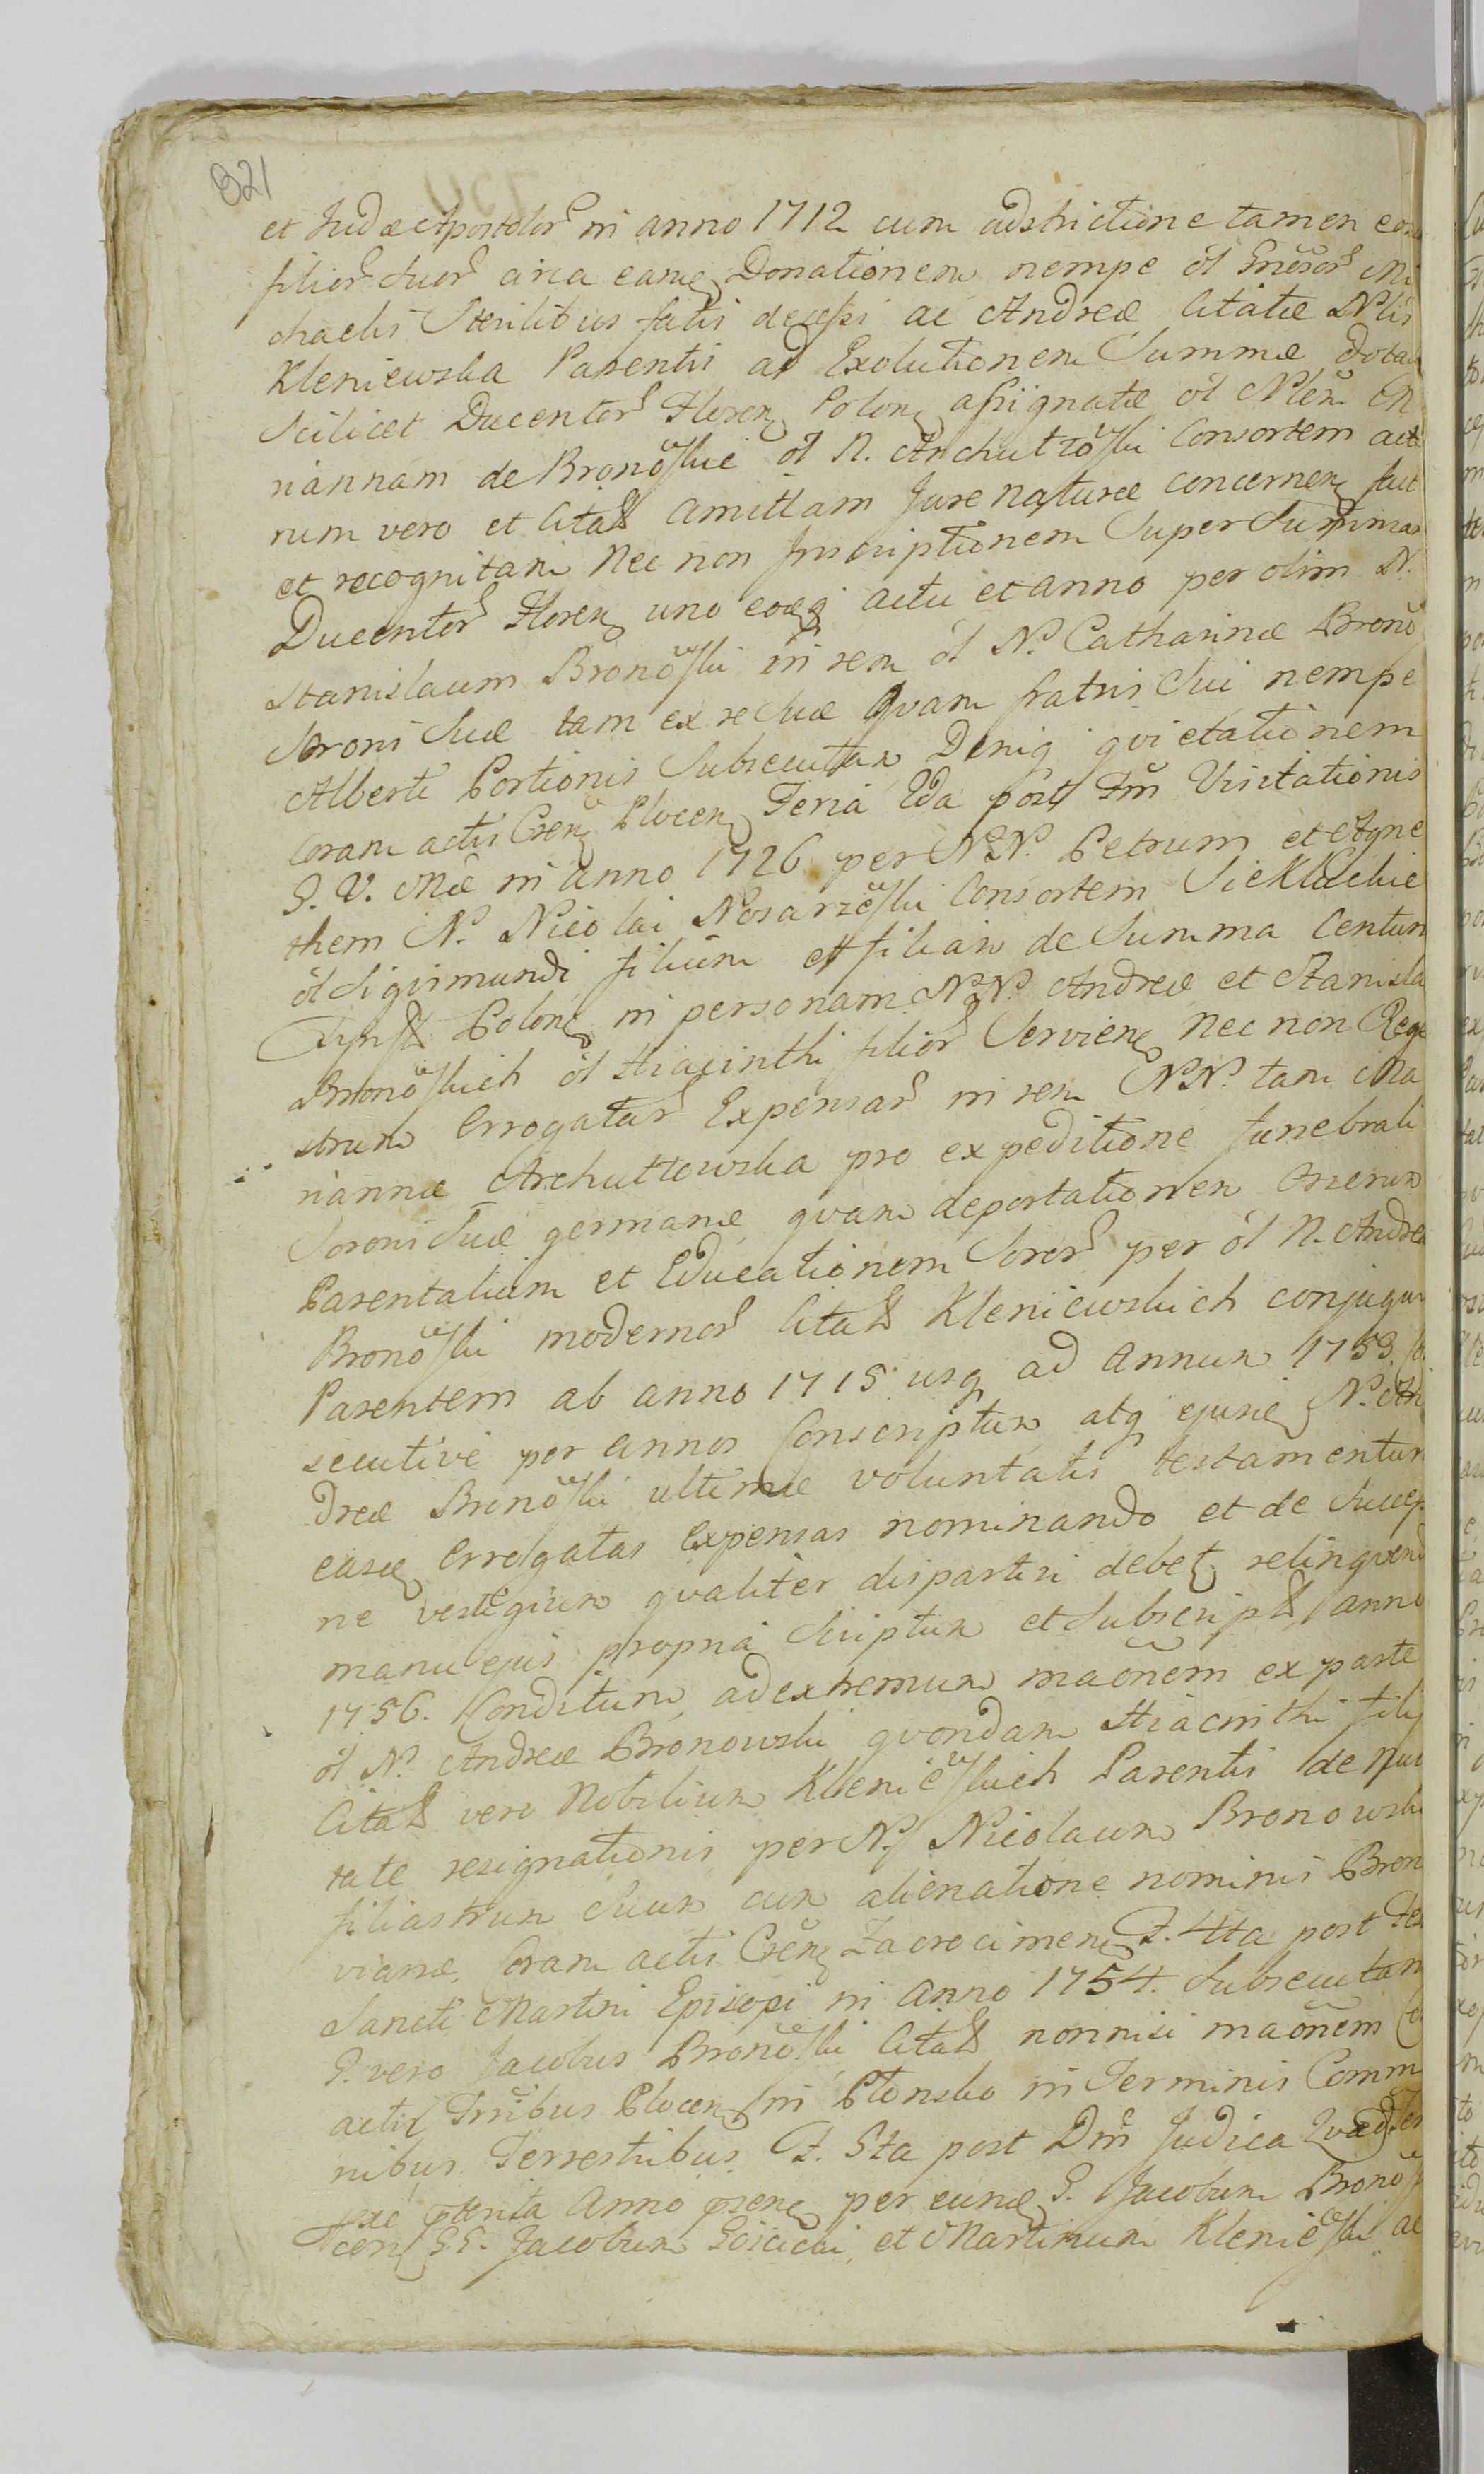 321
et Judæ Apostolor in anno 1712 cum adstrictione tamen
filior suor circa eamq Donationem nempe ol Gnesor Mi
chaelis sterilibus fatis decessi ac Andreæ Citatæ Nlis
Kleniewska Parentis ad Exolutionem Summæ dota
Scilicet Ducentor Floren Polon assignatæ ol Nlem M
riannam de Bronöskie ol N. Archutzöski Consortem act
rum vero et Citat Amittam Jure naturæ concernen fact
et recognitam Nec non Inscriptionem Super Summas
Ducentor Floren uno eoq actu et anno per olim N.
Stanislaum Bronöski in rem ol N. Catharinæ Bronö
Sorori Suæ tam ex re Suæ Quam fratris Sui nempe
Alberti Portionis Subsecutam Deniq qvietationem
Coram actis Csen Plocen Feria 2da post Fm Visitationis
B. V. Mæ in anno 1726 per N.N. Petrum et Agne
them N. Nicolai Nosarzëski Consortem Sieklückie
ol Sigismundi filium et filiam de Summa Centum
Polon in personam N.N. Andreæ et Stanisla
Bronöskich ol Hiacinthi filior Servien Nec non Rege
strum Errogatar Expensar in rem N.N. tam Ma
riannæ Archuttowska pro expeditione funebrali
Sorori Suæ germanæ qvam deportationem Onerum
Parentalium et Educationem Soror per ol N. Andrea
Bronöski modernor Citat Kleniewskich conjugum
Parentem ab anno 1715 usq ad Annum 1753.
secutive per annos Conscriptum atq ejusd N. An
dreæ Bronöski ultimæ voluntatis testamentum
easd Errogatas Expensas nominando et de Succes
ne vestigium qvaliter dispartiri debet relinqvend
manu ejus propria Scriptum et Subscript anno
1756. Conditum, ad extremum maönem ex parte
ol N. Andreæ Bronowski qvondam Hiacinthi filij
Citat vero Nobilium Kleniëskich Parentis de nul
tate resignationis per N. Nicolaum Bronowski
filiastrum Suum cum alienatione nominis Bron
vianæ Coram actis Csen Zacrocimen F. 4ta post Fes
Sancti Martini Episcopi in Anno 1754. Subsecutam
G. vero Jacobus Bronöski Citat nonnisi maönem
actis Trribus Plocen in Plonsko in Terminis Comm
nibus Terrestribus F. 5ta post Dm Judica Quad
anno psen per eund G. Jacobum Bronö
G.G. Jacobum et Martinum Kleniëski ac